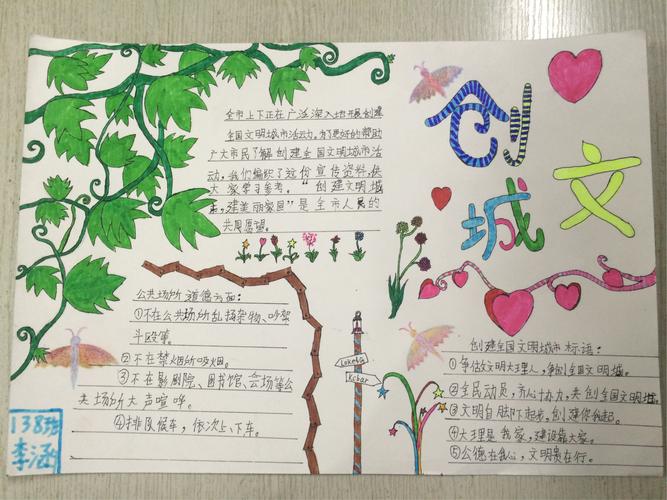 创
城
文
全市上下正在广泛深入地开展创建
全国文明城市活动，为了更好的帮助
广大市民了解创建全国文明城市活
动，我们编织了这份宣传资料，供
大家学习参考。“创建文明城
市，建美丽家园”是全市人民的
共同愿望。
公共场所道德方面：
①不在公共场所乱扔杂物、吵架
斗殴等。
②不在禁烟所吸烟。
③不在影剧院、图书馆、会场等公
共场所大声喧哗。
④排队候车，依次上、下车。
创建全国文明城市标语：
①争做文明大理人，争创全国文明城。
②全民动员，齐心协力，共创全国文明城。
③文明自脚下起步，创建伴我起。
④大理是我家，建设靠大家。
⑤公德在我心，文明贵在行。
Kchar
138班
李涵